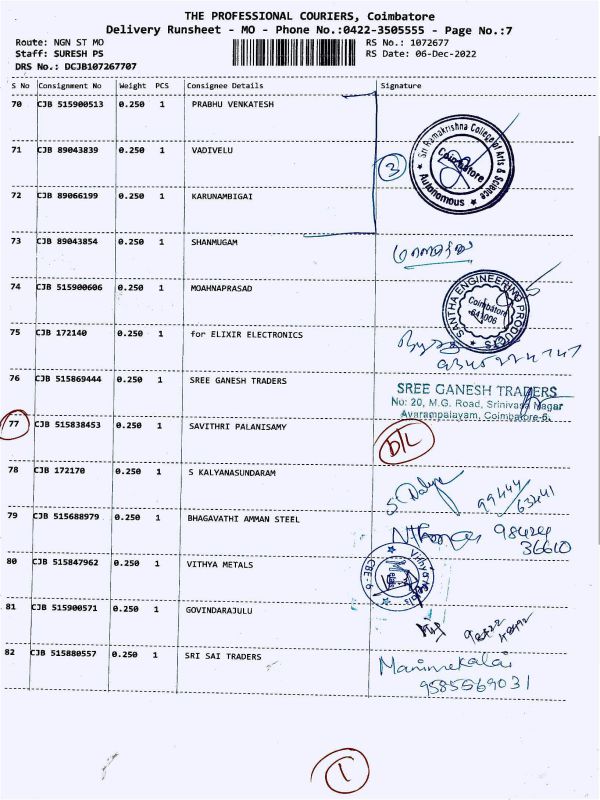 THE PROFESSIONAL COURIERS, Coimbatore
Delivery Runsheet - MO - Phone No.:0422-3505555 - Page No.:7
Route: NGN ST MO
RS No.: 1072677
Staff: SURESH PS
RS Date: 06-Dec-2022
DRS No.: DCJB107267707
S No Consignment No Weight PCS Consignee Details Signature
70 CJB 515900513 0.250 1 PRABHU VENKATESH
Sri Ramakrishna College of Arts & Science
Coimbatore
Autonomous
71 CJB 89043839 0.250 1 VADIVELU
3
72 CJB 89066199 0.250 1 KARUNAMBIGAI
73 CJB 89043854 0.250 1 SHANMUGAM
74 CJB 515900606 0.250 1 MOAHNAPRASAD
SANTHA ENGINEERING PRODUCTS
Coimbatore
-641006
75 CJB 172140 0.250 1 for ELIXIR ELECTRONICS
76 CJB 515869444 0.250 1 SREE GANESH TRADERS
SREE GANESH TRADERS
No: 20, M.G. Road, Srinivasa Nagar
Avarampalayam, Coimbatore-6.
77 CJB 515838453 0.250 1 SAVITHRI PALANISAMY
D/L
78 CJB 172170 0.250 1 S KALYANASUNDARAM
99444
63441
79 CJB 515688979 0.250 1 BHAGAVATHI AMMAN STEEL
98424
36610
80 CJB 515847962 0.250 1 VITHYA METALS
CBE-6
81 CJB 515900571 0.250 1 GOVINDARAJULU
82 CJB 515880557 0.250 1 SRI SAI TRADERS
Manimekalai
9585569031
1